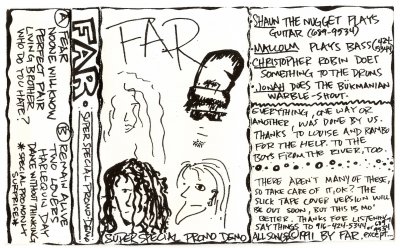 A) FEAR
NOONE WILL KNOW
PERFECT AIR
LIVING BROTHER?
WHO DO YOU HATE?
B) REMAIN ALIVE
TWO LOVERS
HYDEBOUND DAY
DANCE WITHOUT THINKING
* SPECIAL PROMO ONLY
SURPRISES.
FAR • SUPER SPECIAL PROMO DEMO
FAR
SUPER SPECIAL PROMO DEMO
SHAUN THE NUGGET PLAYS
GUITAR (689-9534)
MALCOLM PLAYS BASS
CHRISTOPHER ROBIN DOES
SOMETHING TO THE DRUMS
JONAH DOES THE BUKMANIAN
WARBLE-SHOUT.
EVERYTHING, ONE WAY OR
ANOTHER, WAS DONE BY US.
THANKS TO LOUISE AND RAMBO
FOR THE HELP. TO THE
BOYS FROM THE RIVER, TOO.
THERE AREN'T MANY OF THESE,
SO TAKE CARE OF IT, OK? THE
SLICK TAPE COVER VERSION WILL
BE OUT SOON, BUT THIS IS MO'
BETTER. THANKS FOR LISTENING
SAY THINGS TO 916-424-5344
ALL SONGS © 1991 BY FAR. EXCEPT...